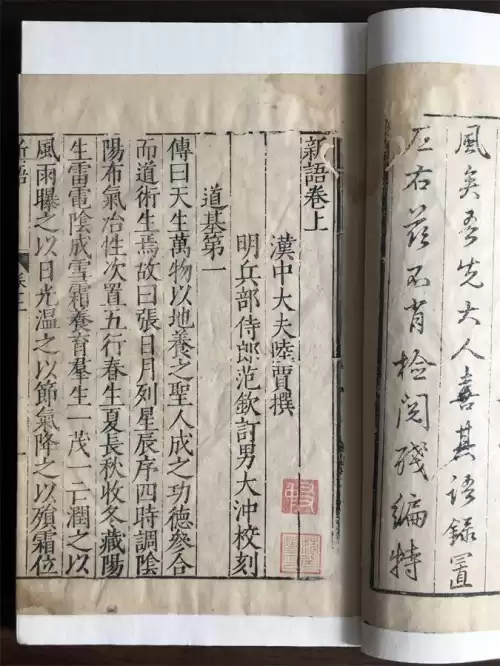 風矣吾先大人喜其語錄置
左右茲不肖檢閱殘編特
新語卷上
漢中大夫陸賈撰
明兵部侍郎范欽訂男大沖校刻
道基第一
傳曰天生萬物以地養之聖人成之功德參合
而道術生焉故曰張日月列星辰序四時調陰
陽布氣治性次置五行春生夏長秋收冬藏陽
生雷電陰成雪霜養育羣生一茂一亡潤之以
風雨曝之以日光溫之以節氣降之以殞霜位
新語 卷上